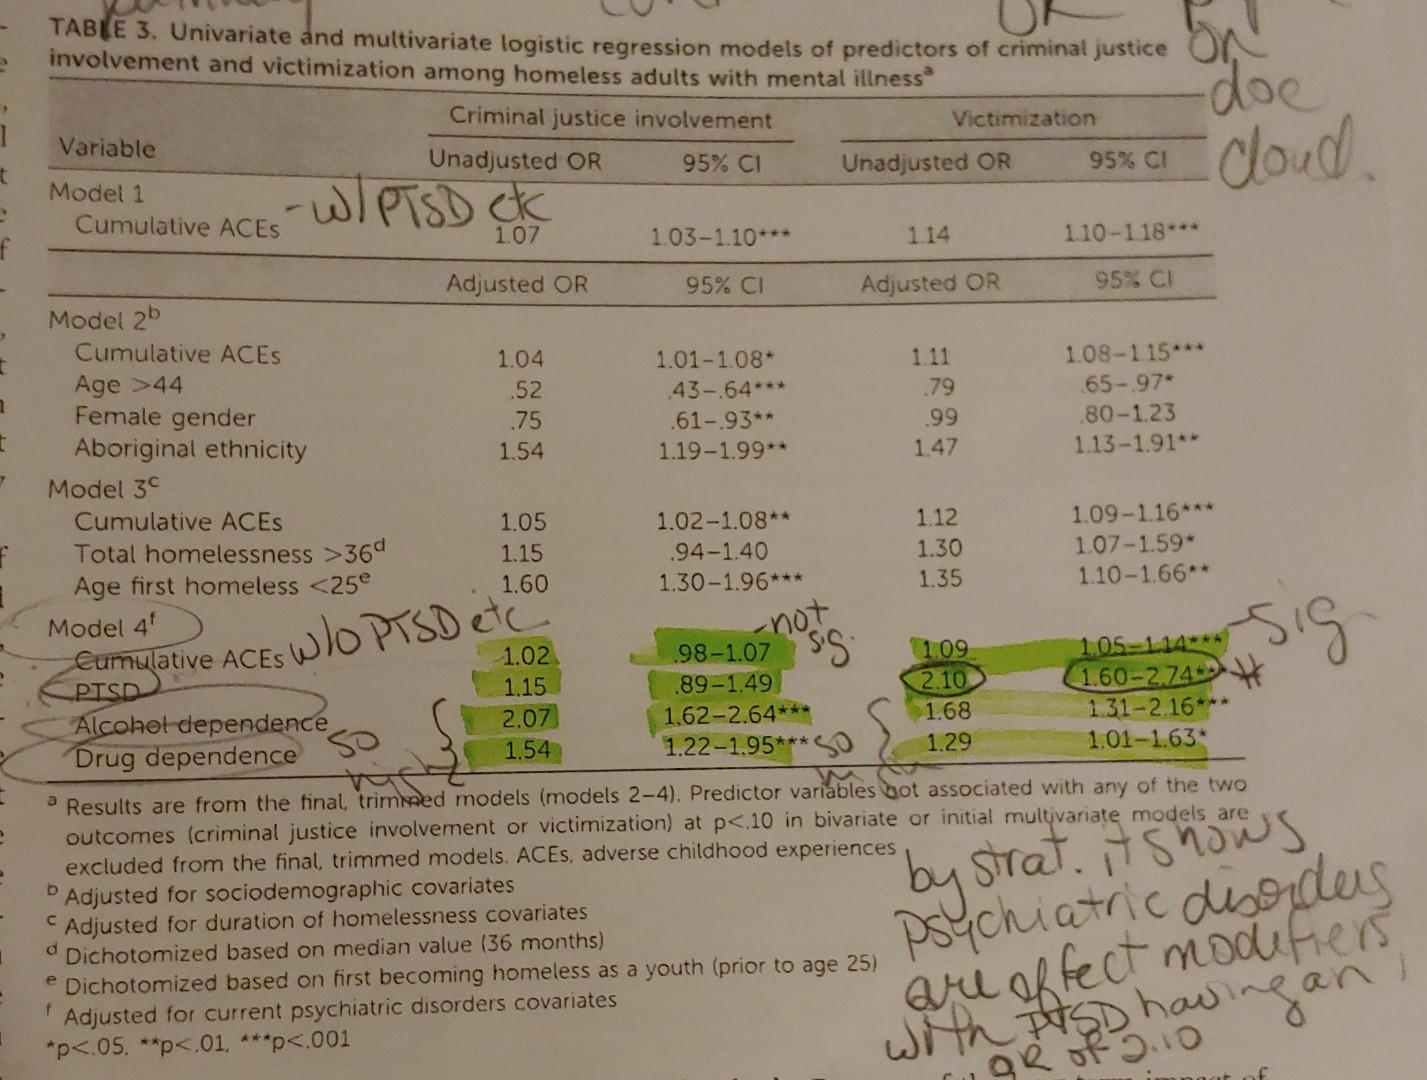 OR
on
doc
cloud.
TABLE 3. Univariate and multivariate logistic regression models of predictors of criminal justice
involvement and victimization among homeless adults with mental illnessᵃ
Criminal justice involvement Victimization
Variable Unadjusted OR 95% CI Unadjusted OR 95% CI
Model 1
- w/ PTSD etc
Cumulative ACEs 1.07 1.03–1.10*** 1.14 1.10–1.18***
Adjusted OR 95% CI Adjusted OR 95% CI
Model 2ᵇ
Cumulative ACEs 1.04 1.01–1.08* 1.11 1.08–1.15***
Age >44 .52 .43–.64*** .79 .65–.97*
Female gender .75 .61–.93** .99 .80–1.23
Aboriginal ethnicity 1.54 1.19–1.99** 1.47 1.13–1.91**
Model 3ᶜ
Cumulative ACEs 1.05 1.02–1.08** 1.12 1.09–1.16***
Total homelessness >36ᵈ 1.15 .94–1.40 1.30 1.07–1.59*
Age first homeless <25ᵉ 1.60 1.30–1.96*** 1.35 1.10–1.66**
Model 4ᶠ
w/o PTSD etc
- not
sig.
- sig
Cumulative ACEs 1.02 .98–1.07 1.09 1.05–1.14***
PTSD 1.15 .89–1.49 2.10 1.60–2.74***
Alcohol dependence 2.07 1.62–2.64*** 1.68 1.31–2.16***
Drug dependence 1.54 1.22–1.95*** 1.29 1.01–1.63*
so
high
so
ᵃ Results are from the final, trimmed models (models 2–4). Predictor variables not associated with any of the two
outcomes (criminal justice involvement or victimization) at p<.10 in bivariate or initial multivariate models are
excluded from the final, trimmed models. ACEs, adverse childhood experiences
ᵇ Adjusted for sociodemographic covariates
ᶜ Adjusted for duration of homelessness covariates
ᵈ Dichotomized based on median value (36 months)
ᵉ Dichotomized based on first becoming homeless as a youth (prior to age 25)
ᶠ Adjusted for current psychiatric disorders covariates
*p<.05, **p<.01, ***p<.001
by strat. it shows
psychiatric disorders
are effect modifiers
with PTSD having an
OR of 2.10